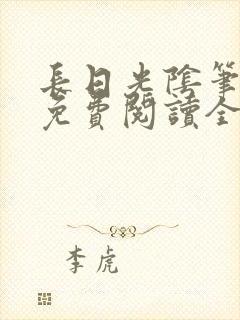 長日光陰筆
免費閱讀全
李虎